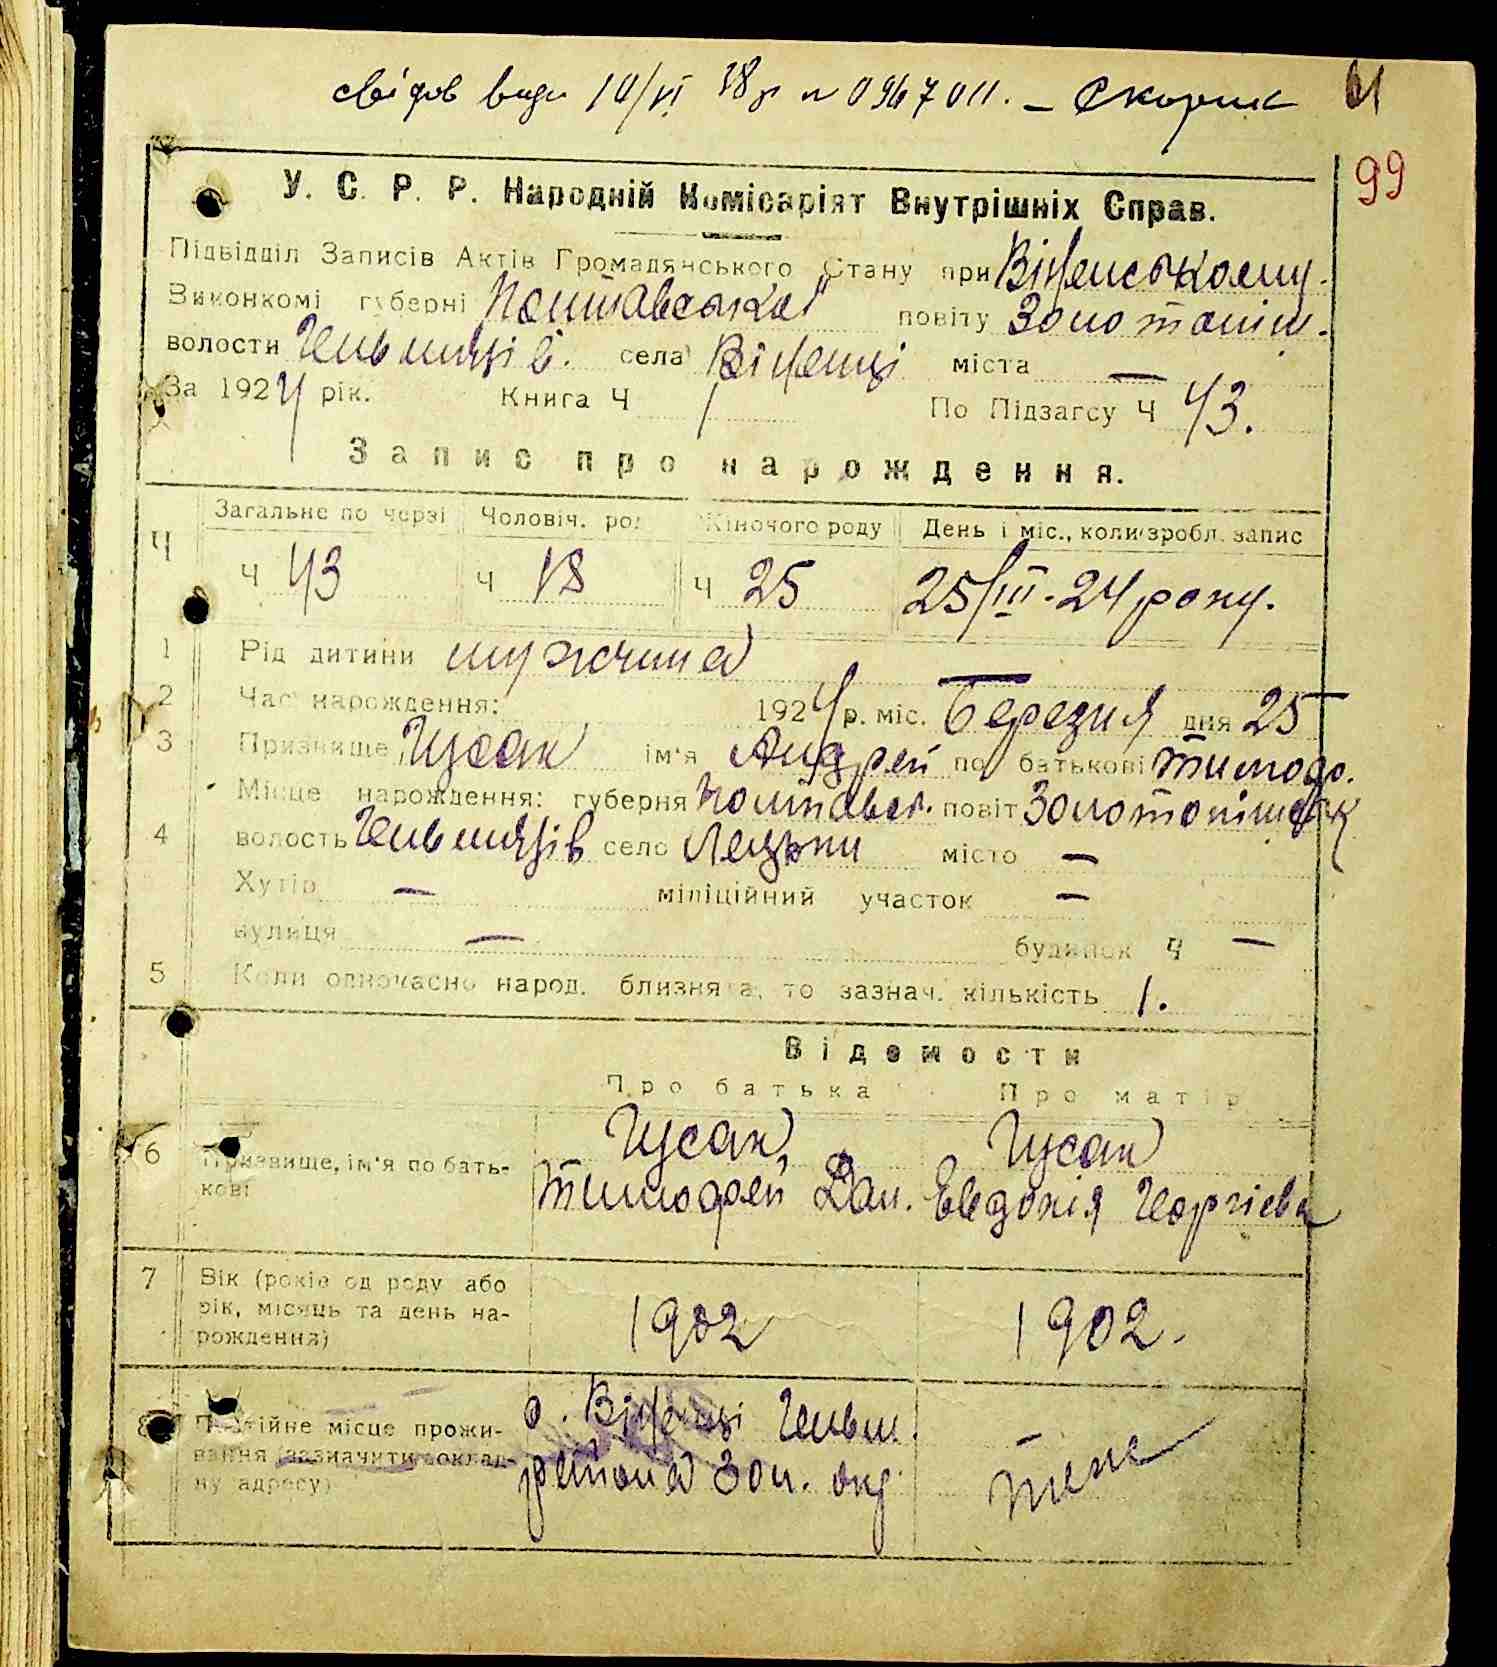 свідов видан 10/VI 38 р № 0967011. – Скорик 61
99
У. С. Р. Р. Народній Комісаріят Внутрішніх Справ.
Підвідділ Записів Актів Громадянського Стану при
Виконкомі губерні Полтавської повіту Золотоніш.
волости села міста —
За 1924 рік. Книга Ч 1 По Підзагсу Ч 43.
Запис про народження.
Ч Загальне по черзі Чоловіч. роду Жіночого роду День і міс., коли зробл. запис
Ч 43 Ч 18 Ч 25 25/III - 24 року.
1 Рід дитини мужчина
2 Час народження: 1924 р. міс. Березня дня 25
3 Призвище Гусак ім'я Андрей по батькові Тимофе.
Місце народження: губерня Полтавсь. повіт Золотонішськ
4 волость село місто —
Хутір — міліційний участок —
вулиця — будинок ч —
5 Коли одночасно народ. близнята, то зазнач. кількість 1.
Відомости
Про батька Про матір
6 Призвище, ім'я по бать- Гусак, Гусак
кові Тимофей Дан. Евдокія Георгіева
7 Вік (років од роду або
рік, місяць та день на- 1902 1902.
рождення)
8 Постійне місце прожи- с.
вання (зазначити доклад-
ну адресу) района Зол. окр. теж